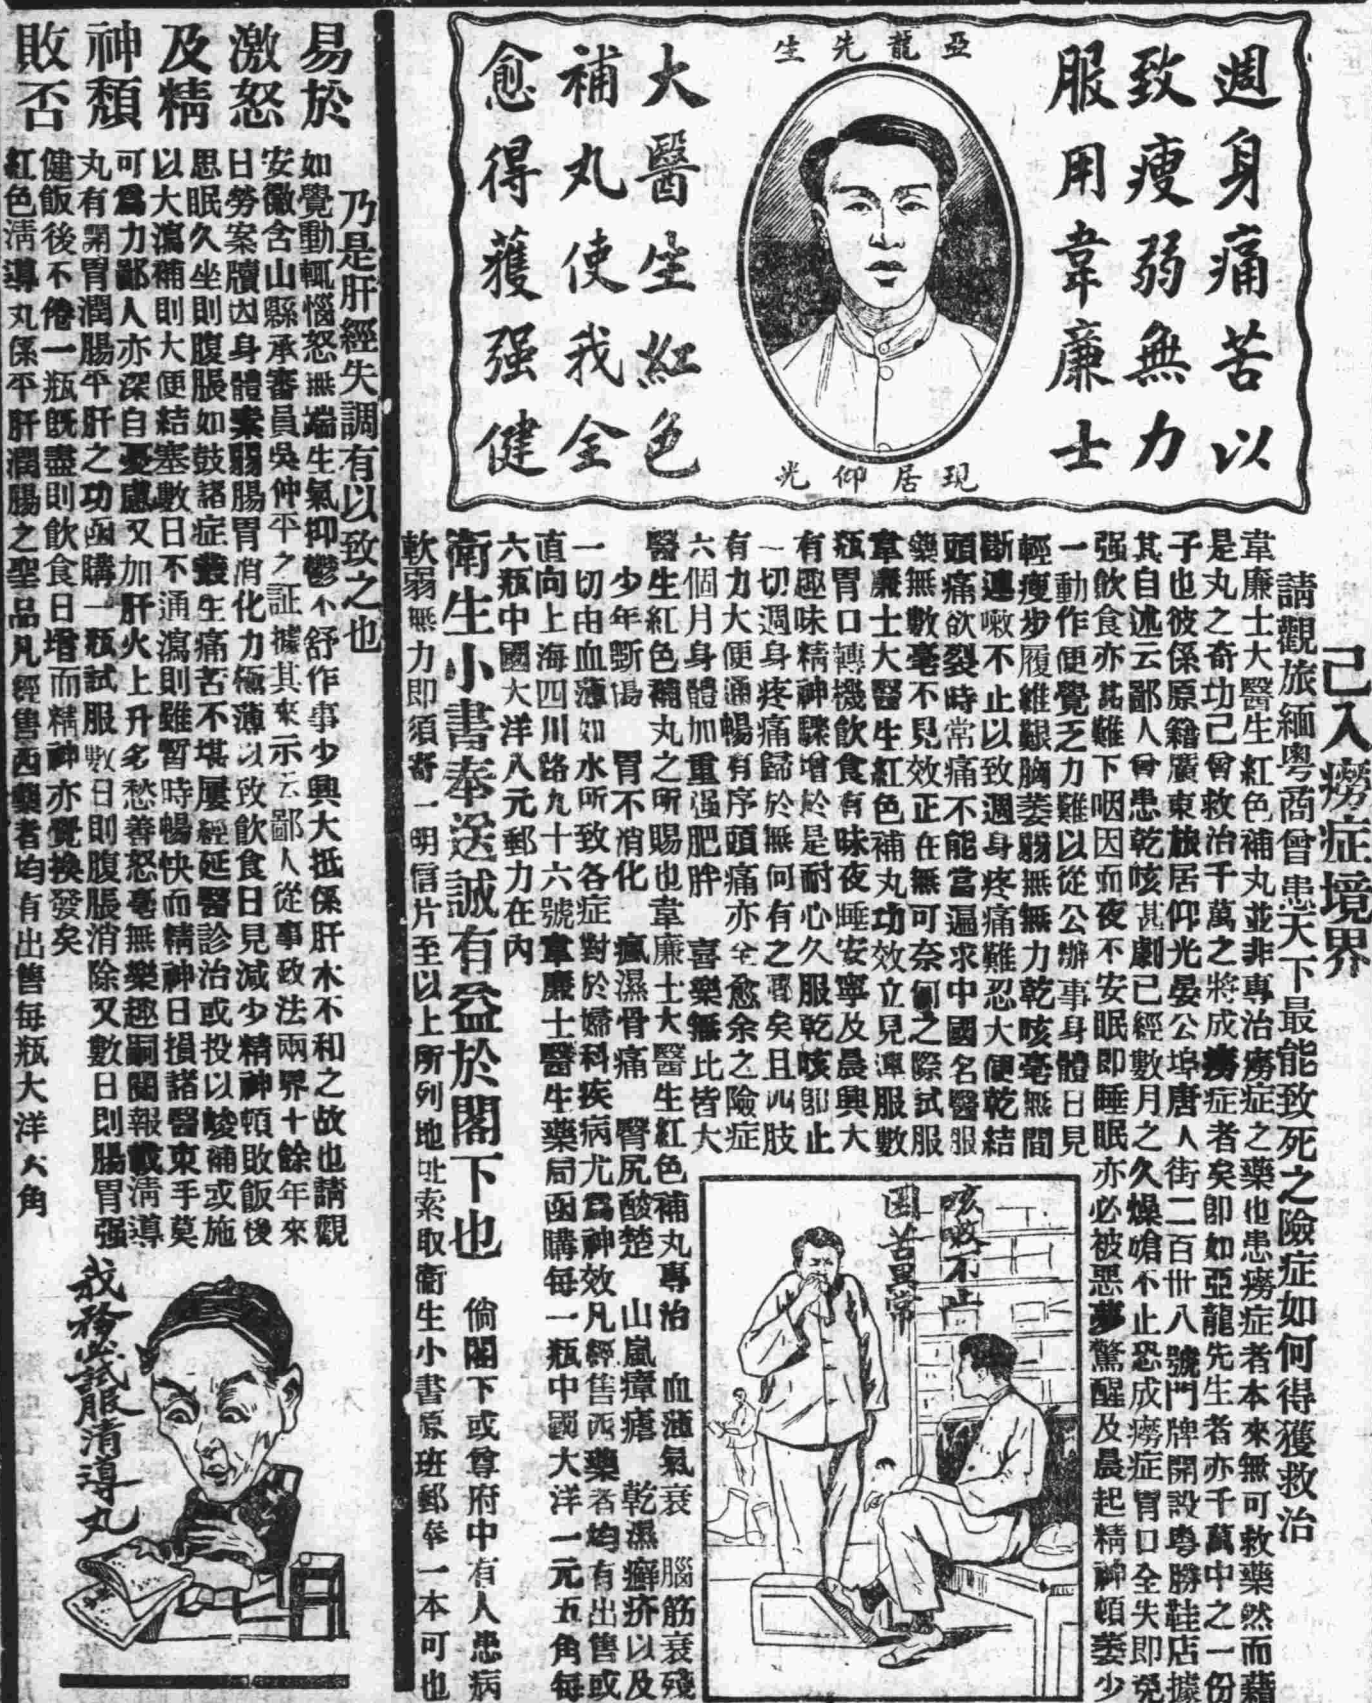 週身痛苦以
致瘦弱無力
服用韋廉士
亞龍先生
現居仰光
大醫生紅色
補丸使我全
愈得獲强健
已入癆症境界
請觀旅緬粵商曾患天下最能致死之險症如何得獲救治
韋廉士大醫生紅色補丸並非專治癆症之藥也患癆症者本來無可救藥然而藉
是丸之奇功已曾救治千萬之將成癆症者矣即如亞龍先生者亦千萬中之一份
子也彼係原籍廣東旅居仰光晏公埠唐人街二百卅八號門牌開設粵勝鞋店據
其自述云鄙人曾患乾咳甚劇已經數月之久燥嗆不止恐成癆症胃口全失即勞
强飲食亦甚難下咽因而夜不安眠即睡眠亦必被惡夢驚醒及晨起精神頓萎少
一動作便覺乏力難以從公辦事身體日見
輕瘦步履維艱胸萎弱無力乾咳毫無間
斷連嗽不止以致週身疼痛難忍大便乾結
頭痛欲裂時常痛不能當遍求中國名醫服
藥無數毫不見效正在無可奈何之際試服
韋廉士大醫生紅色補丸功效立見連服數
瓶胃口轉機飲食有味夜睡安寧及晨興大
有趣味精神驟增於是耐心久服乾咳即止
一切週身疼痛歸於無何有之鄉矣且四肢
有力大便通暢有序頭痛亦全愈余之險症
六個月身體加重强肥胖 喜樂無比皆大
醫生紅色補丸之所賜也韋廉士大醫生紅色補丸專治 血薄氣衰 腦筋衰殘
少年斲傷 胃不消化 瘋濕骨痛 臀尻酸楚 山嵐瘴瘧 乾濕癬疥以及
一切由血薄如水所致各症對於婦科疾病尤爲神效凡經售西藥者均有出售或
直向上海四川路九十六號韋廉士醫生藥局函購每一瓶中國大洋一元五角每
六瓶中國大洋八元郵力在內
咳嗽不止
困苦異常
衛生小書奉送誠有益於閣下也 倘閣下或尊府中有人患病
軟弱無力即須寄一明信片至以上所列地址索取衛生小書原班郵奉一本可也
易於
激怒
及精
神頹
敗否
乃是肝經失調有以致之也
如覺動輒惱怒無端生氣抑鬱不舒作事少興大抵係肝木不和之故也請觀
安徽含山縣承審員吳仲平之証據其來示云鄙人從事政法兩界十餘年來
日勞案牘因身體素弱腸胃消化力極薄以致飲食日見減少精神頓敗飯後
思眠久坐則腹脹如鼓諸症叢生痛苦不堪屢經延醫診治或投以峻補或施
以大瀉補則大便結塞數日不通瀉則雖暫時暢快而精神日損諸醫束手莫
可爲力鄙人亦深自憂慮又加肝火上升多愁善怒毫無樂趣嗣閱報載淸導
丸有開胃潤腸平肝之功函購一瓶試服數日則腹脹消除又數日則腸胃强
健飯後不倦一瓶既盡則飲食日增而精神亦覺換發矣
紅色淸導丸係平肝潤腸之聖品凡經售西藥者均有出售每瓶大洋六角
我務必試服清導丸